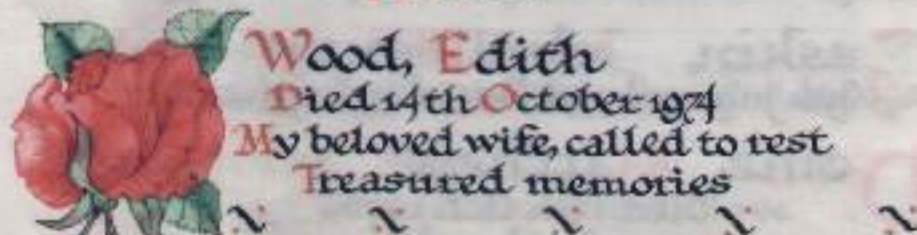 Wood, Edith
Died 14th October 1974
My beloved wife, called to rest
Treasured memories